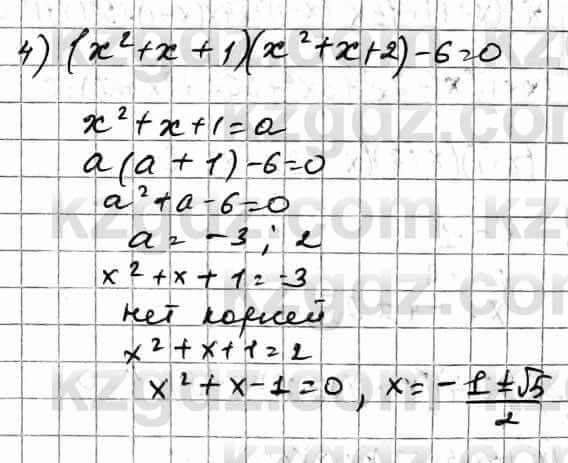 4) (x²+x+1)(x²+x+2)-6=0
x²+x+1=a
a(a+1)-6=0
a²+a-6=0
a= -3; 2
x²+x+1=-3
нет корней
x²+x+1=2
x²+x-1=0, x= -1±√5/2
kzgdz.com